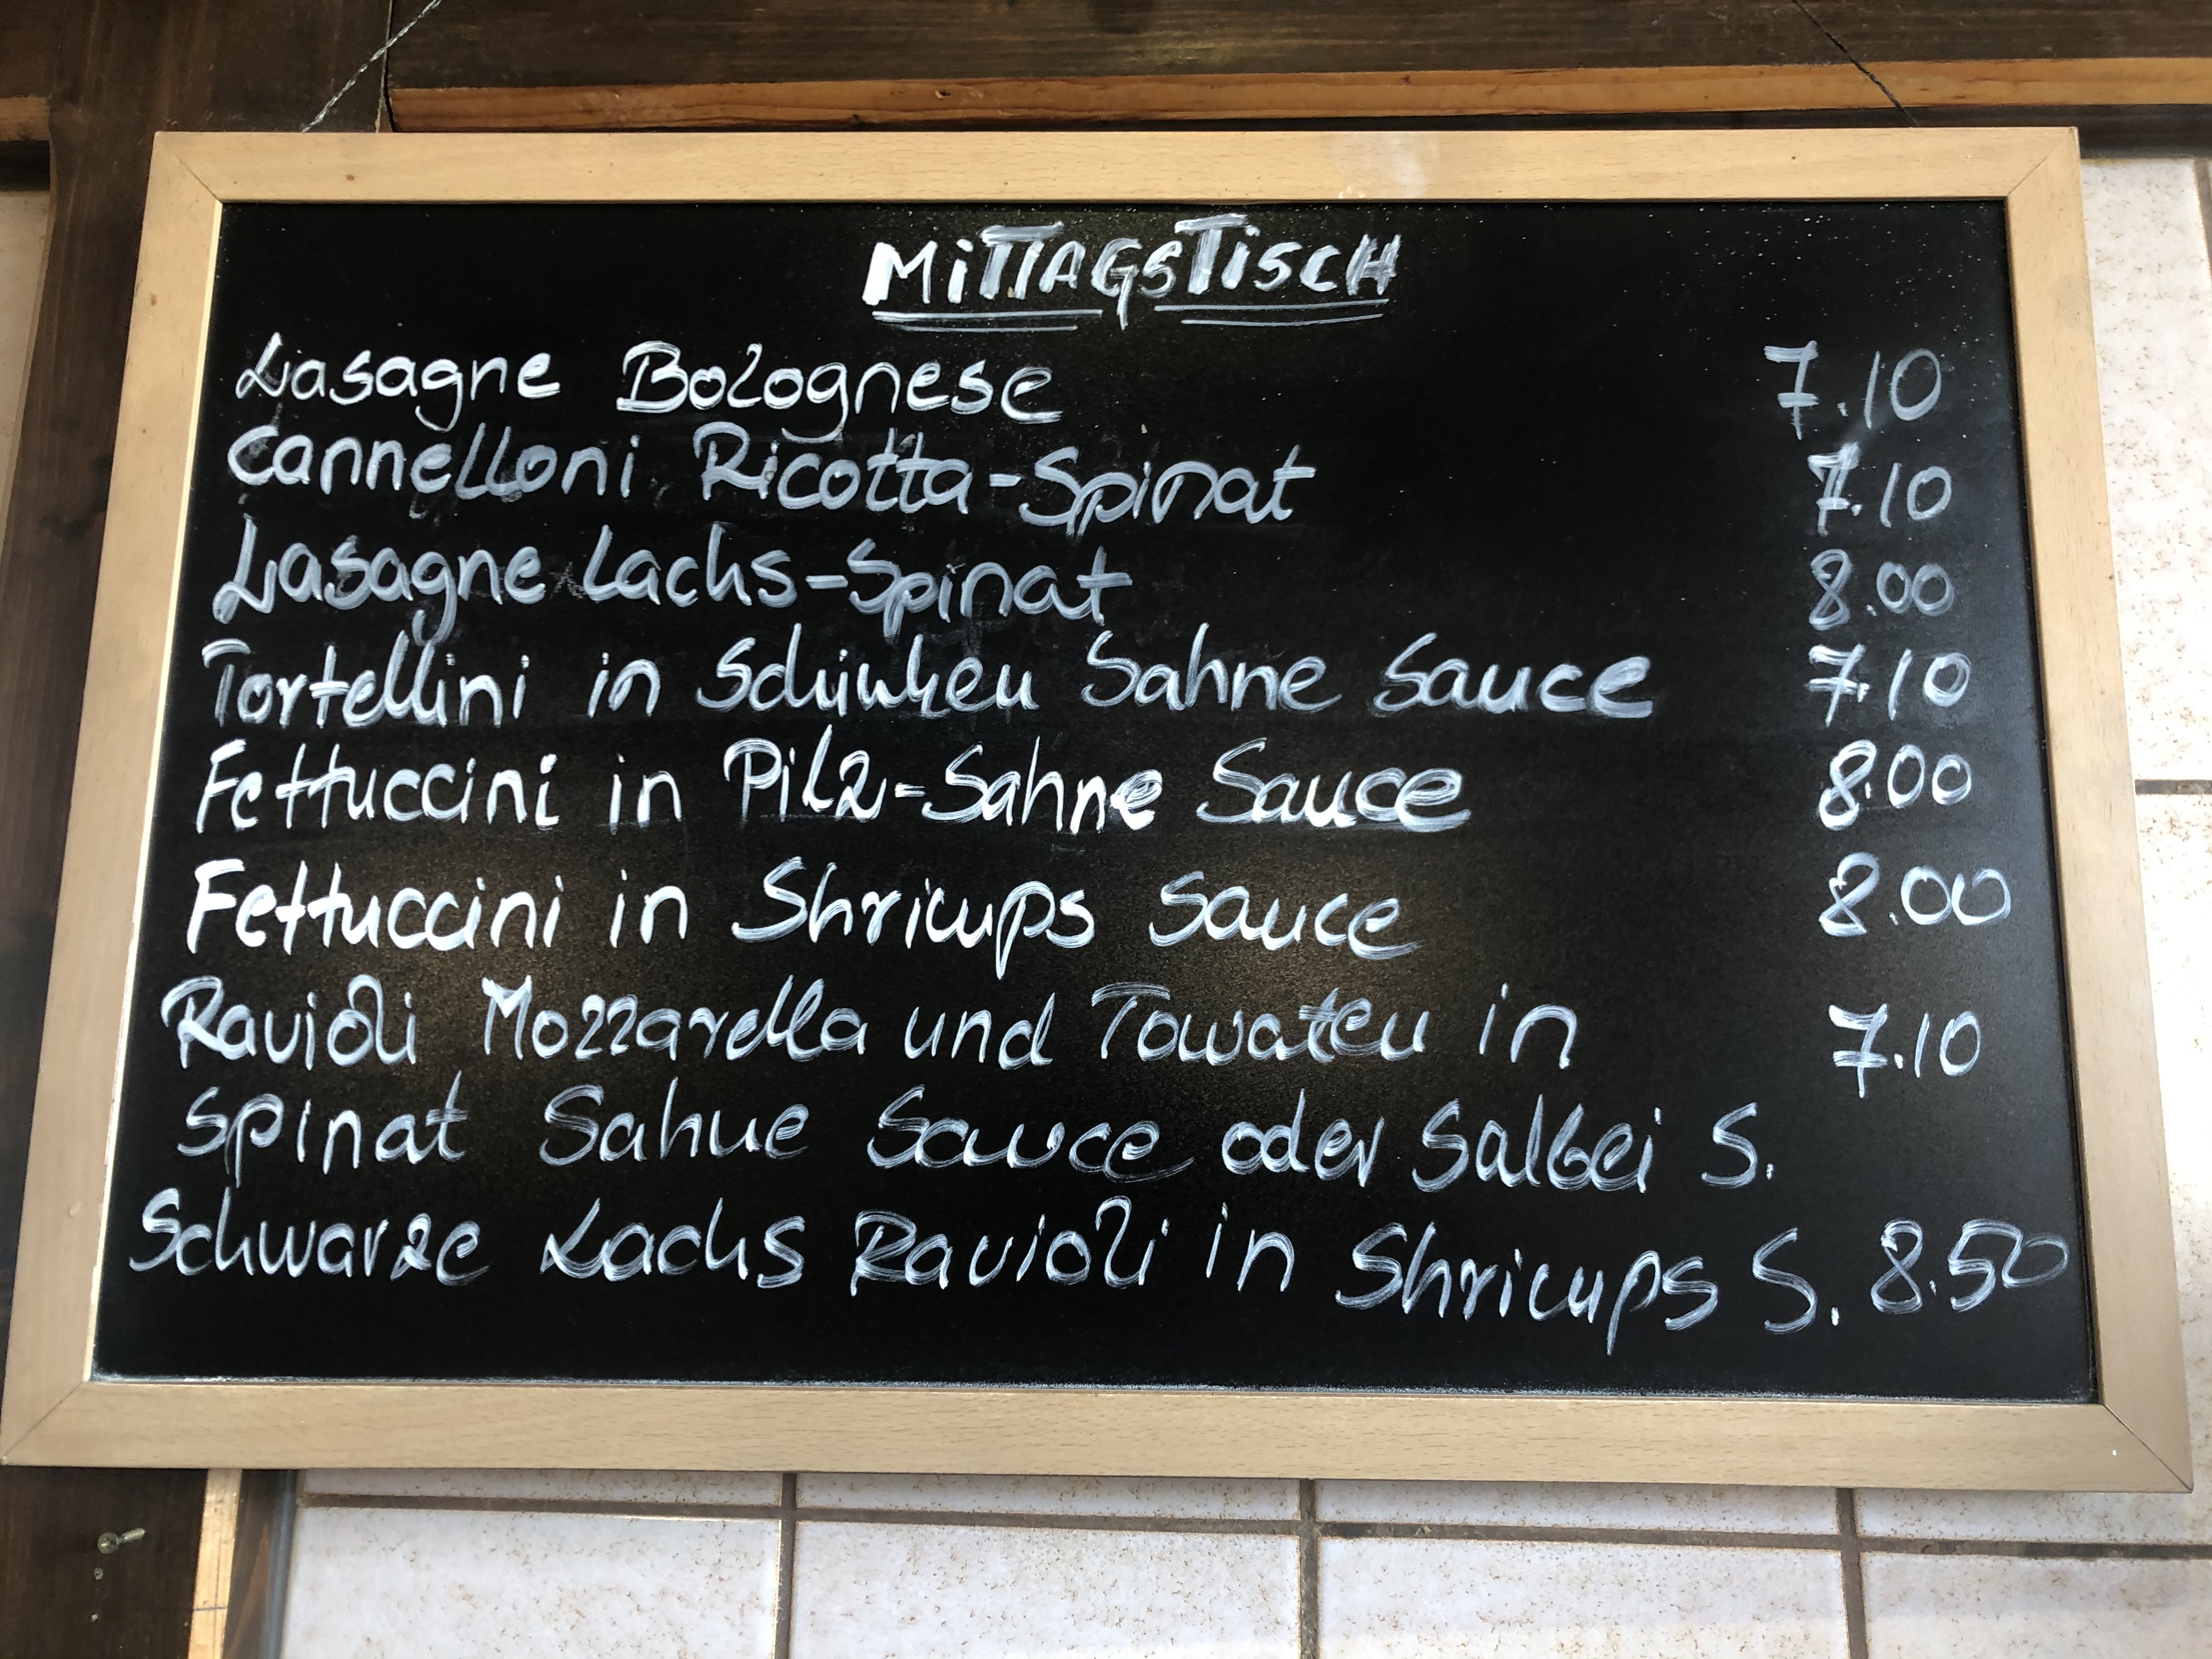 MITTAGSTISCH
Lasagne Bolognese 7.10
Cannelloni Ricotta-Spinat 7.10
Lasagne Lachs-Spinat 8.00
Tortellini in Schinken Sahne Sauce 7.10
Fettuccini in Pilz-Sahne Sauce 8.00
Fettuccini in Shrimps Sauce 8.00
Ravioli Mozzarella und Tomaten in 7.10
Spinat Sahne Sauce oder Salbei S.
Schwarze Lachs Ravioli in Shrimps S. 8.50